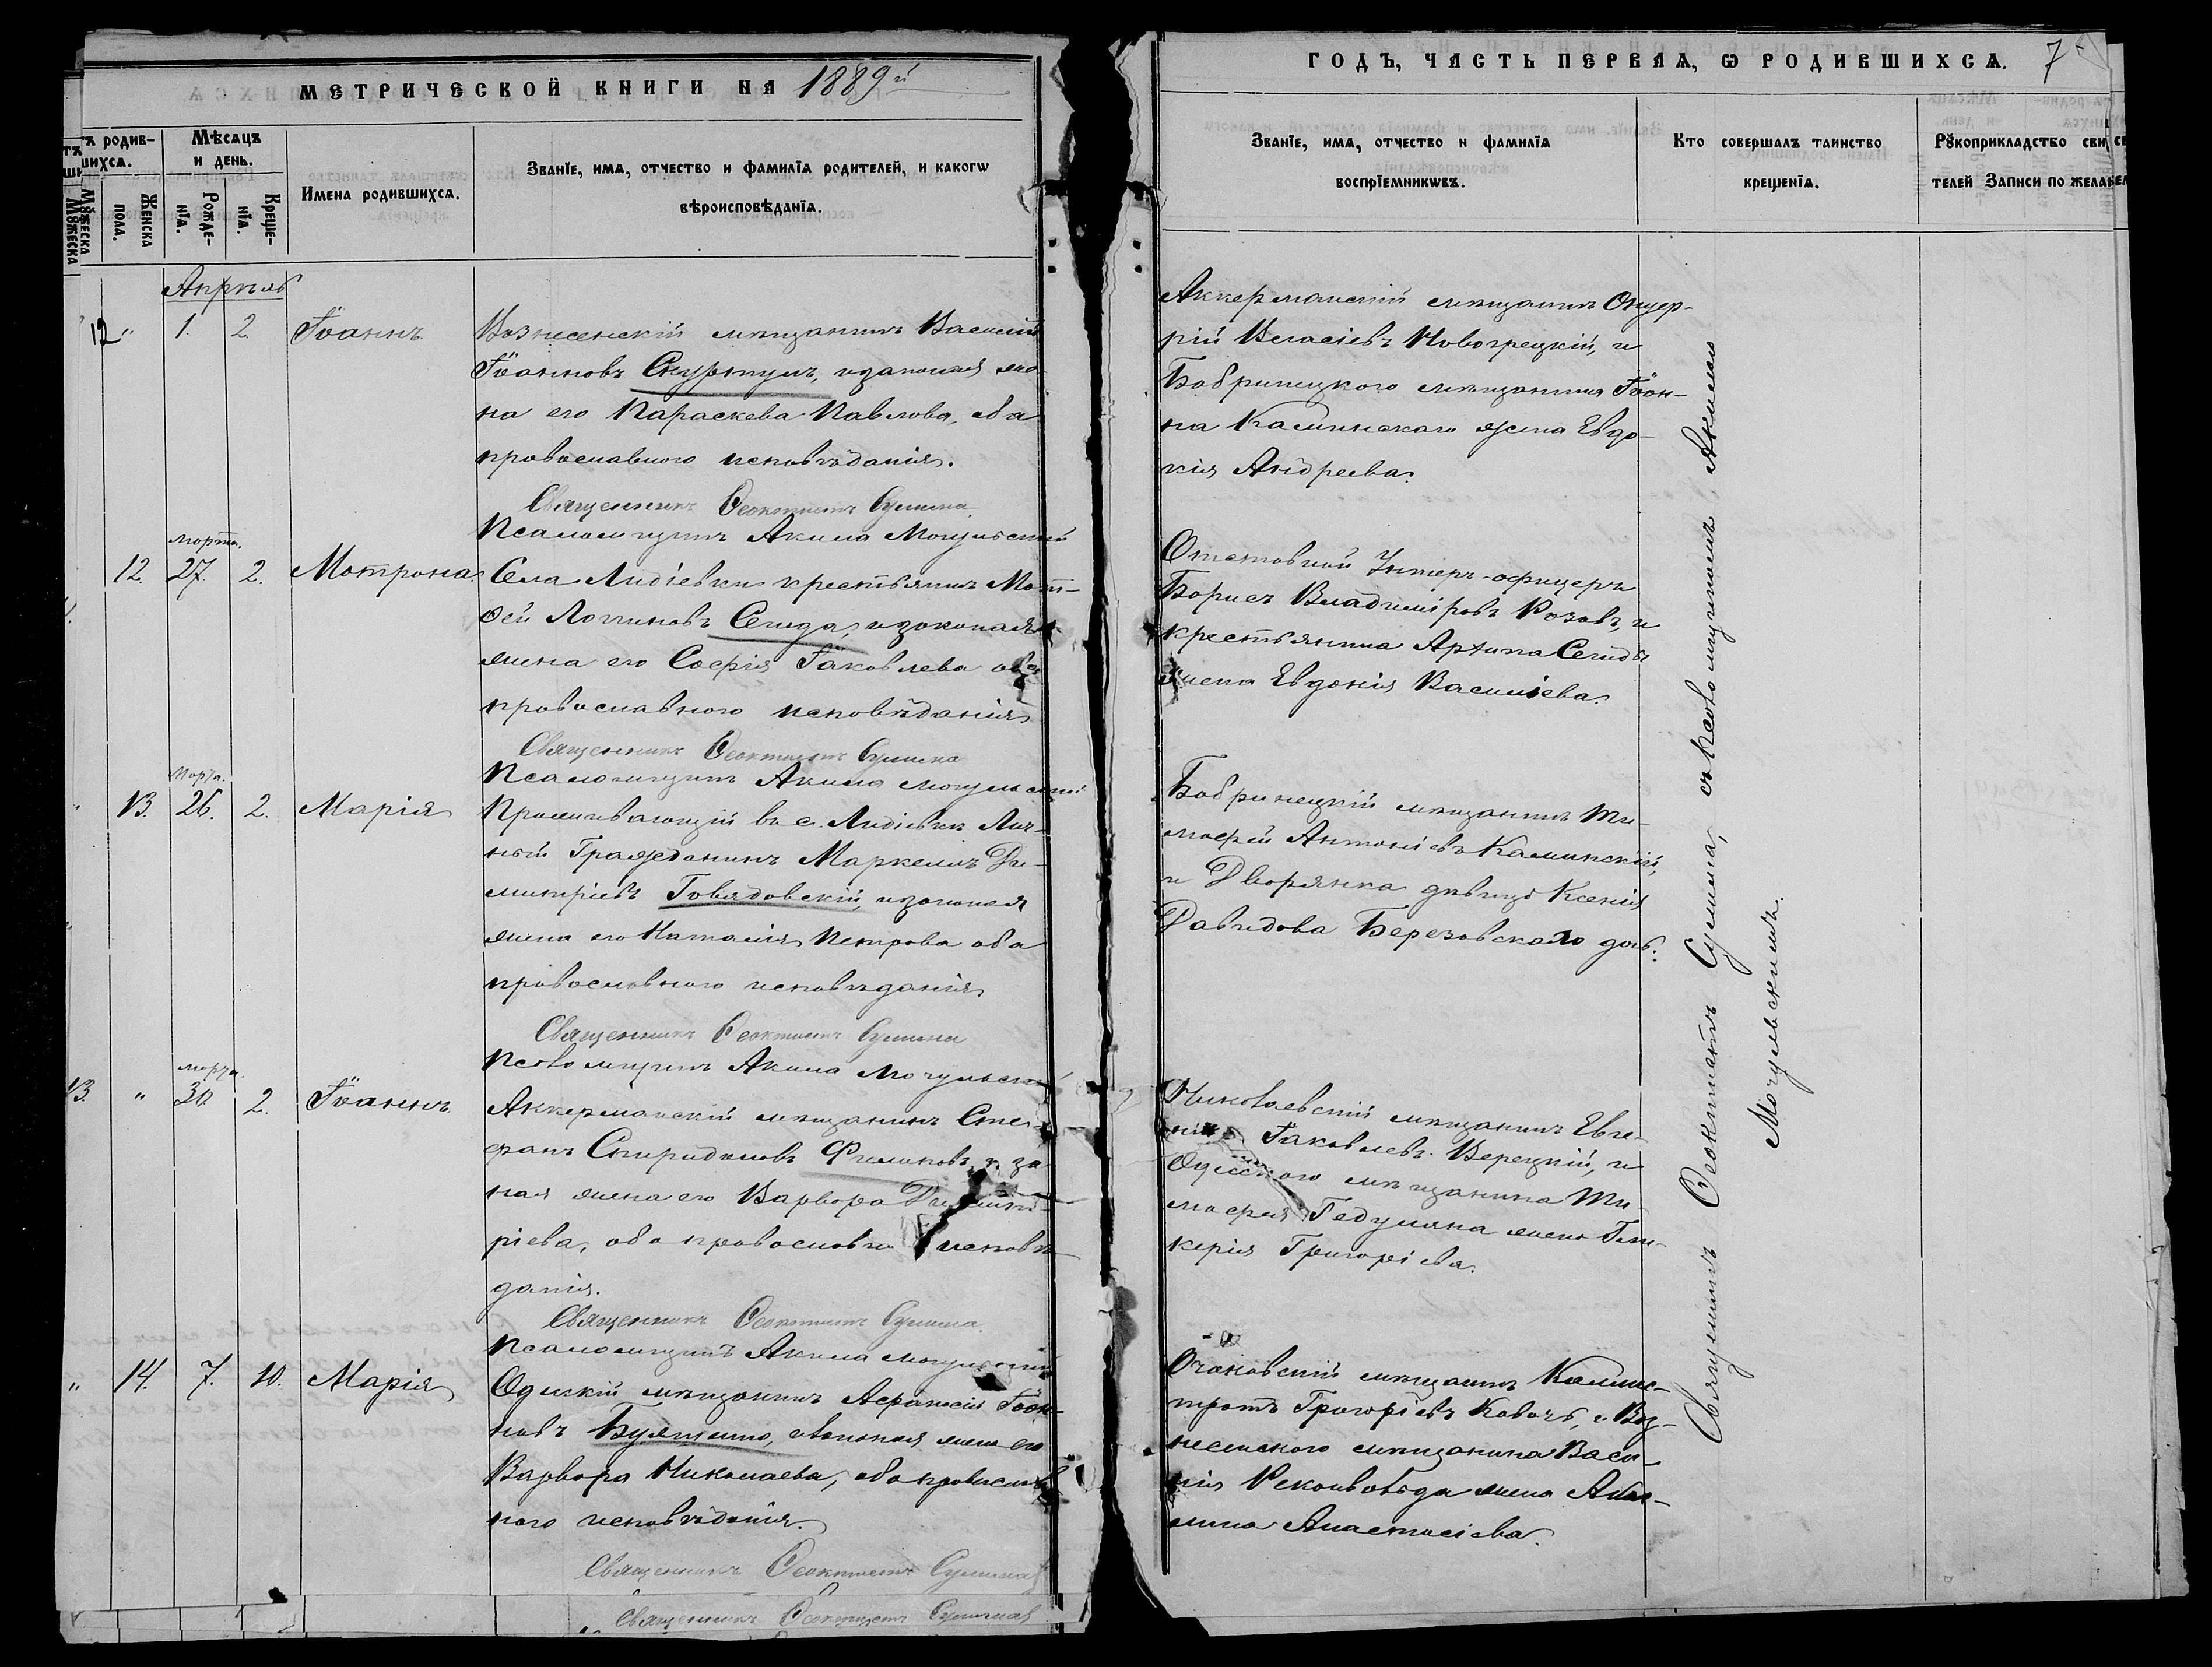 МЕТРИЧЕСКОЙ КНИГИ НА 1889й
ГОДЪ, ЧАСТЬ ПЕРВАЯ, Ѡ РОДИВШИХСЯ. 7
родив-
шихся.
Мѣсяцъ
и день.
Мꙋжеска
Женска
пола.
Рожде-
нїя.
Креще-
нїя.
Имена родившихся.
Званїе, имя, отчество и фамилїя родителей, и какогѡ
вѣроисповѣданїя.
Званїе, имя, отчество и фамилїя
воспрїемникѡвъ.
Кто совершалъ таинство
крещенїя.
Рꙋкоприкладство сви
телей записи по жела
Апрѣль
12 " 1. 2. Іоаннъ.
Вознесенскій мѣщанинъ Василій
Іоанновъ Скуртулъ, и законная же
на его Параскева Павлова, оба
православного исповѣданія.
Священникъ Ѳеоктистъ Сулима
Псаломщикъ Акила Могульскій
Аккерманскій мѣщанинъ
Власіевъ Новогрецкій, и
Бобринецкого мѣщанина Іоан-
на Каминскаго жена Евдо-
кія Андреева.
марта.
12. 27. 2. Мотрона.
Села Лидіевки крестьянинъ Мат-
ѳей Логиновъ Сегида, и законая
жена его Софія Іаковлева оба
православного исповѣданія
Священникъ Ѳеоктистъ Сулима
Псаломщикъ Акила Могульскій
Отставной Унтеръ-офицеръ
Борисъ Владиміровъ Розовъ, и
крестьянина Архипа Сегиды
жена Евдокія Василіева.
марта.
13. 26. 2. Марія
Проживающій въ с. Лидіевкѣ Лич-
ный Гражданинъ Маркелъ Ди-
митріевъ Говядовскій, и законая
жена его Наталія Петрова оба
православного исповѣданія
Священникъ Ѳеоктистъ Сулима
Псаломщикъ Акила Могульскій
Бобринецкій мѣщанинъ Ти-
моѳей Антоніевъ Каминскій,
и Дворянка дѣвица Ксенія
Давидова Березовскаго дочь.
марта.
13 " 30 2. Іоаннъ.
Аккерманскій мѣщанинъ Сте-
фанъ Спиридоновъ Филиповъ, и за
ная жена его Варвара Димит-
ріева, оба православна исповѣ-
данія.
Священникъ Ѳеоктистъ Сулима
Псаломщикъ Акила Могульскій
Николаевскій мѣщанинъ Евге-
ній Іаковлевъ Верецкій, и
Одесского мѣщанина Ти-
моѳея жена Гли-
керія Григоріева.
" 14. 7. 10. Марія
Одесскій мѣщанинъ Афанасій Іоан-
новъ законная жена его
Варвара Николаева, оба православ
ного исповѣданія.
Священникъ Ѳеоктистъ Сулима
Священникъ Ѳеоктистъ Сулима
Очаковскій мѣщанинъ Калис-
тратъ Григоріевъ Ковачъ, и Воз-
несенского мѣщанина Васи-
лія жена Акил-
лина Анастасіева.
Священникъ Ѳеоктистъ Сулима, съ псаломщикомъ Акилою
Могульскимъ.